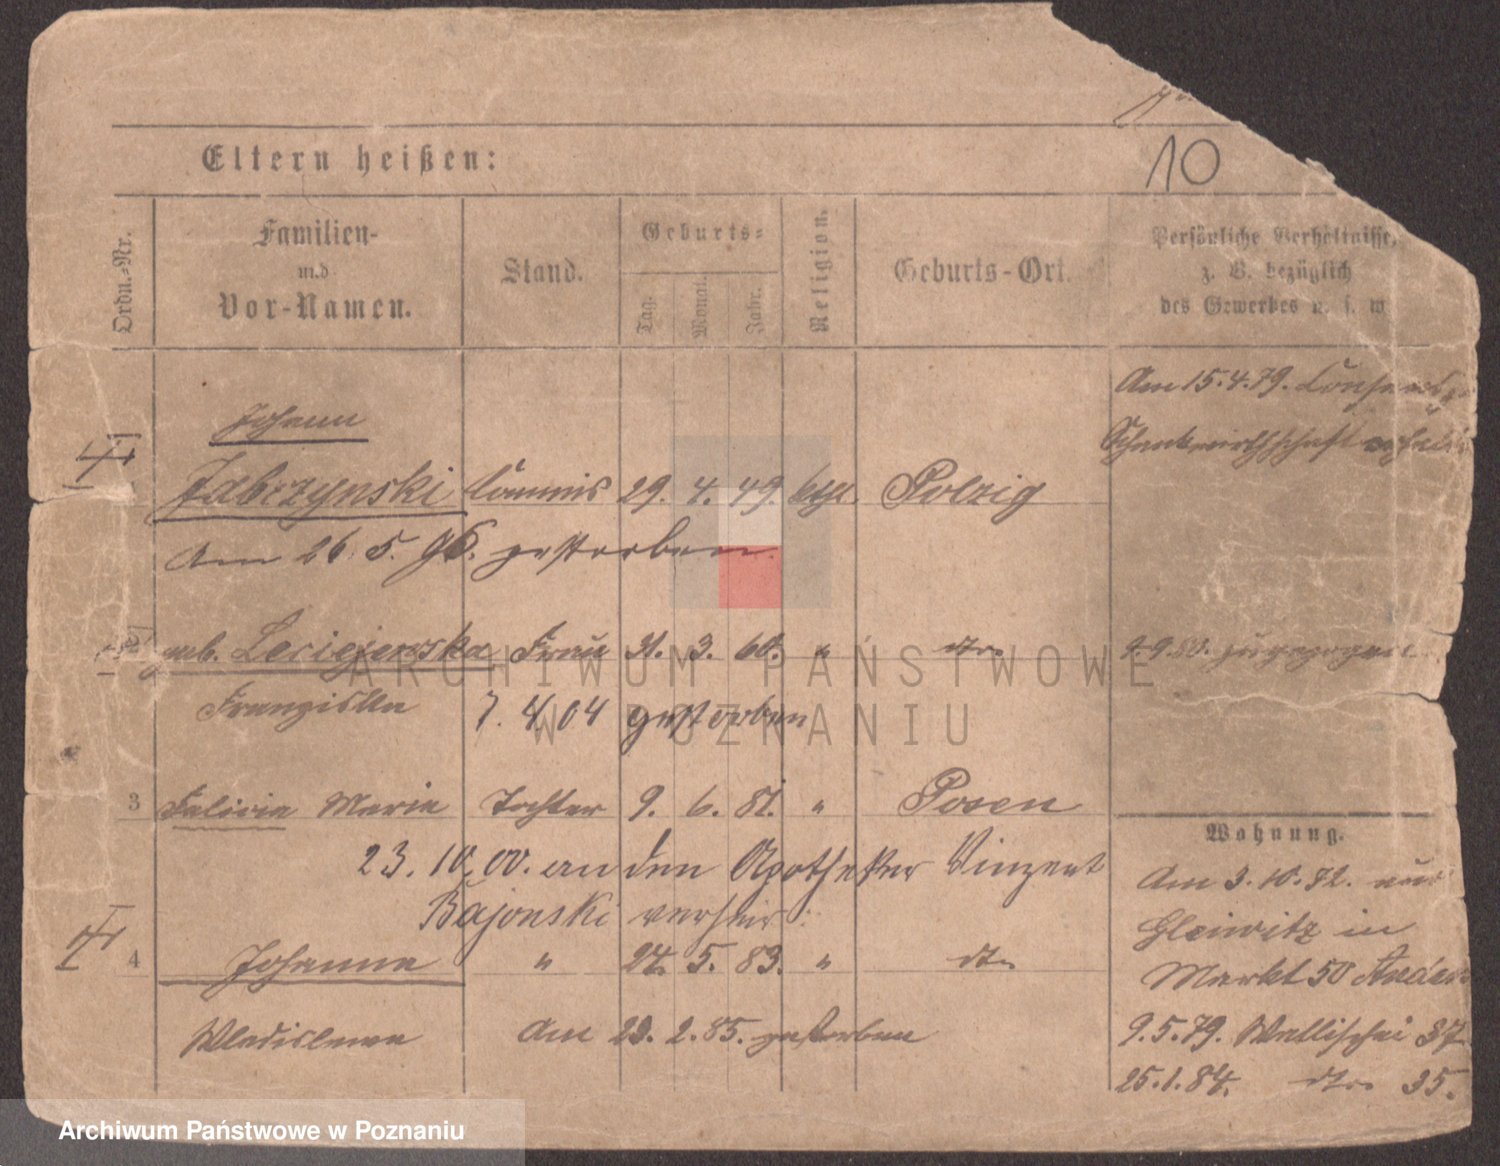 10
Eltern heißen:
Ordn.-Nr.
Familien-
und
Vor-Namen.
Stand.
Geburts-
Tag.
Monat.
Jahr.
Religion.
Geburts-Ort.
Persönliche Verhältnisse,
z. B. bezüglich
des Gewerbes u. s. w
Am 15.4.79. Consens
Johann
Schankwirthschaft
Jabczynski Commis 29. 4. 49. kath. Polzig
Am 26. 5. 96. gestorben.
geb. Leciejewska Frau 31. 3. 60. " dto. 9.9.80. zugezogen
Franziska 7. 4/04 gestorben
3 Felicia Marie Tochter 9. 6. 81. " Posen
Wohnung.
23. 10. 00. an den Apotheker Vinzent
Am 3.10.72. aus
Bajonski verheir:
Gleiwitz in
4 Johanna " 24. 5. 83. " dto
Markt 50
Wladislawa Am 23. 2. 85. gestorben
9.5.79. Wallischei 37
25.1.84. dto 35.
ARCHIWUM PAŃSTWOWE
W POZNANIU
Archiwum Państwowe w Poznaniu